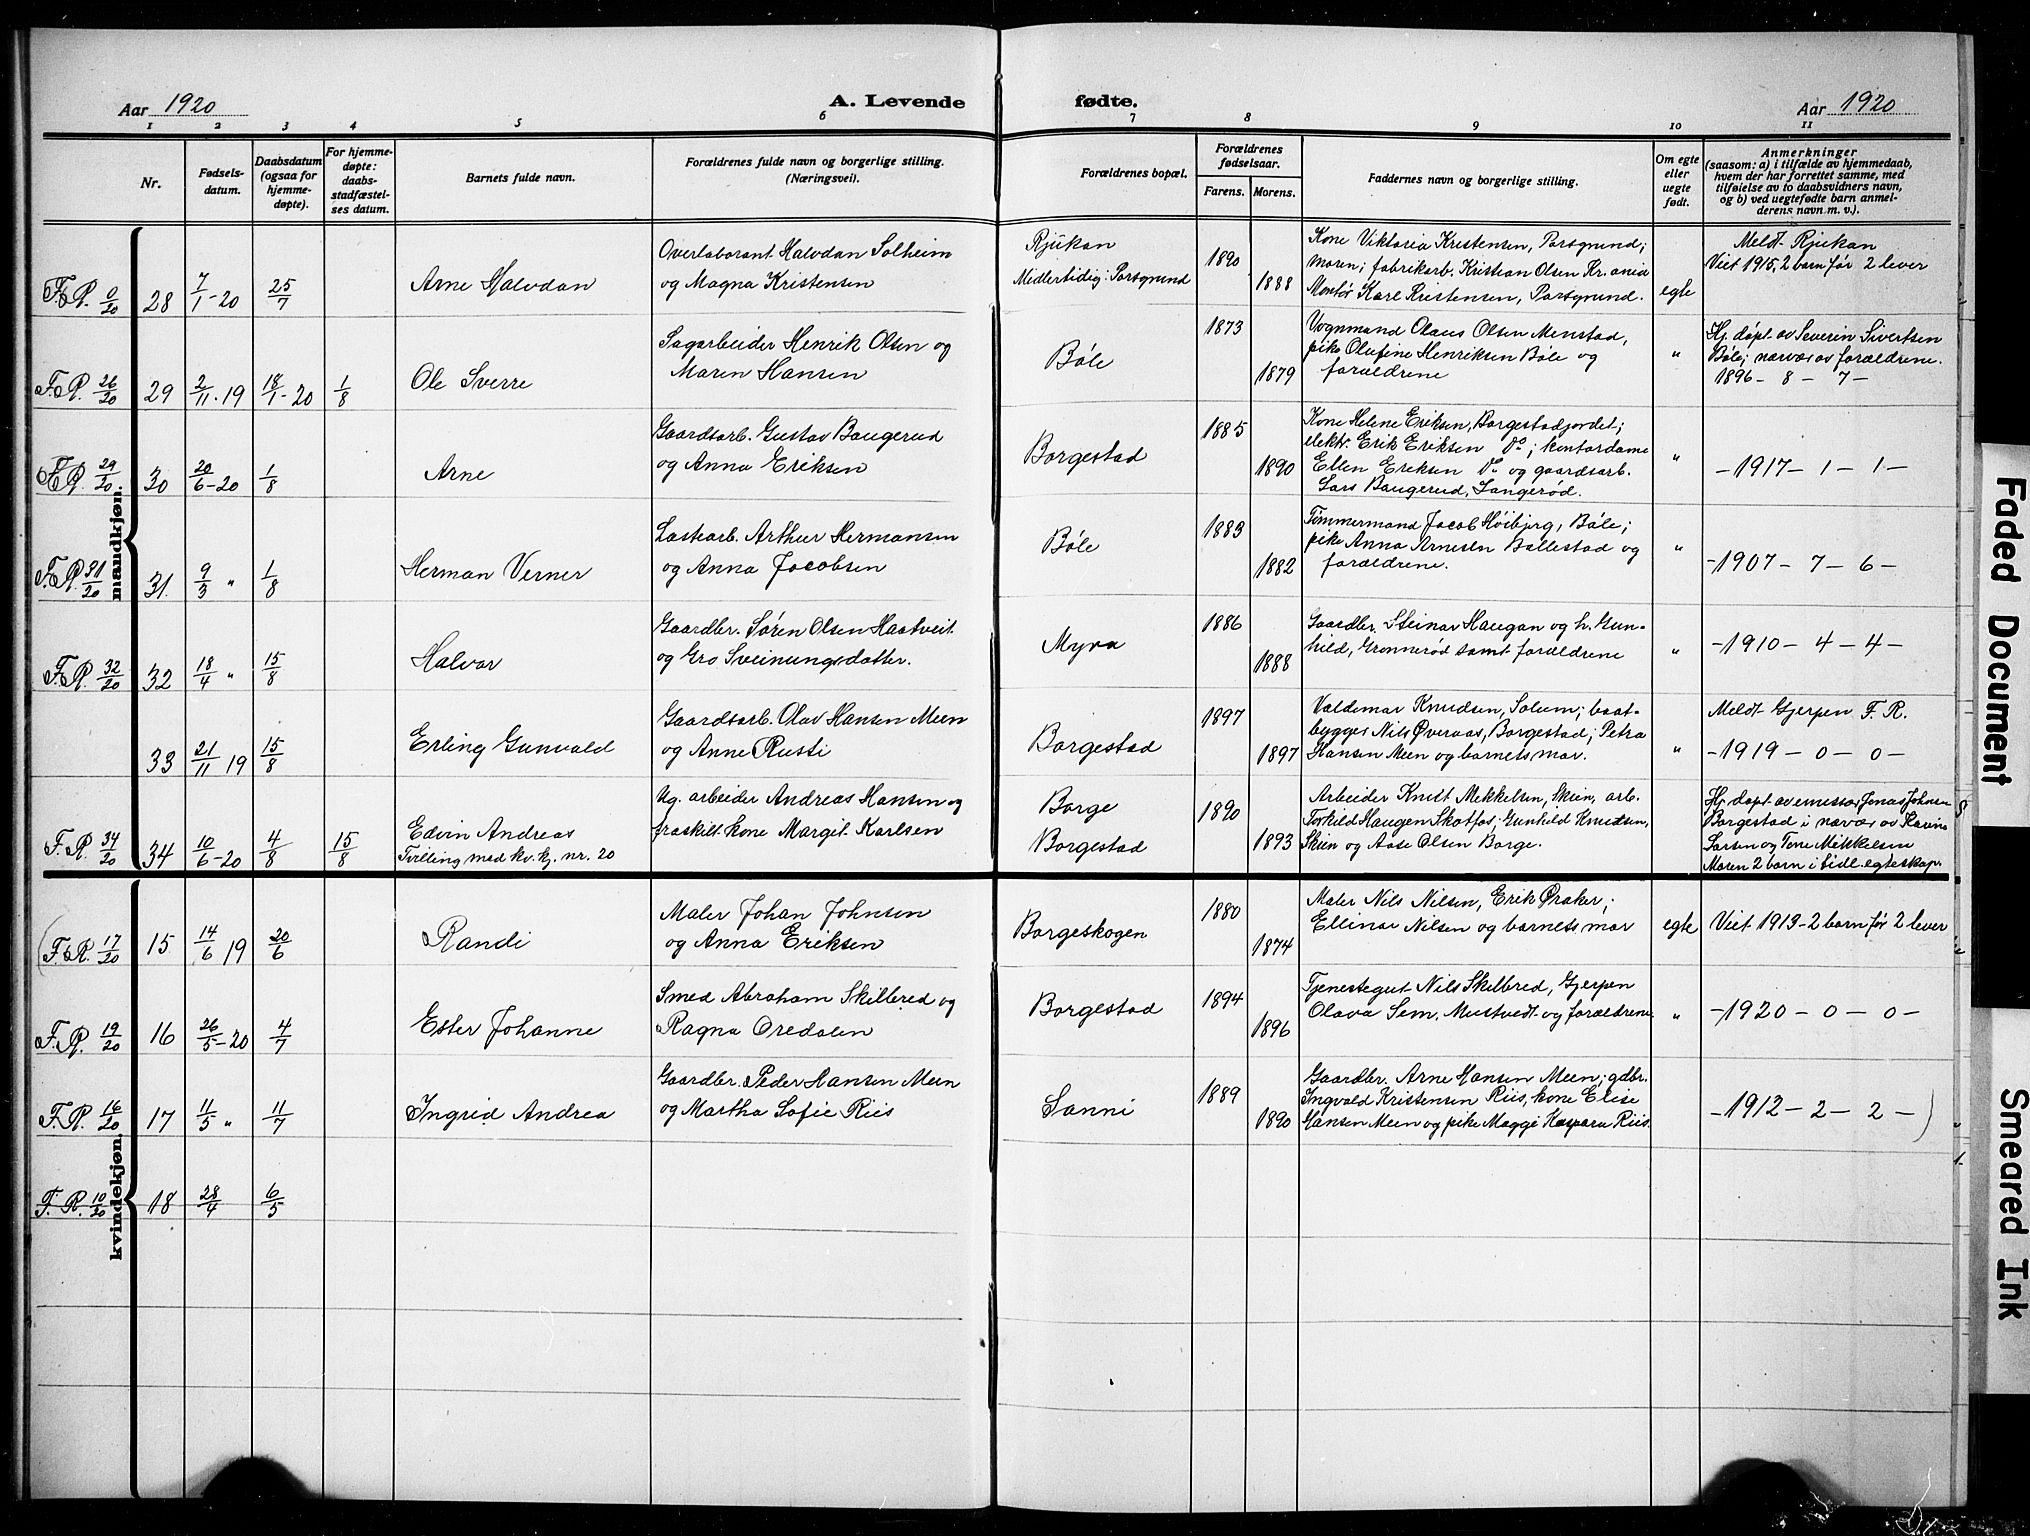 Aar 1920
A. Levende fødte.
Aar 1920
1 2 3 4 5 6 7 8 9 10 11
Nr.
Fødselsdatum.
Daabsdatum (ogsaa for hjemmedøpte).
For hjemmedøpte: daabsstadfæstelses datum.
Barnets fulde navn.
Forældrenes fulde navn og borgerlige stilling. (Næringsvei).
Forældrenes bopæl.
Forældrenes fødselsaar.
Farens. Morens.
Faddernes navn og borgerlige stilling.
Om egte eller uegte født.
Anmerkninger
(saasom: a) i tilfælde av hjemmedaab,
hvem der har forrettet samme, med
tilføielse av to daabsvidners navn,
og b) ved uegtefødte barn anmelderens navn m. v.).
mandkjøn.
F.R. 0/20 28 7/1-20 25/7
Arne Halvdan
Overlaborant Halvdan Solheim
og Magna Kristensen
Rjukan
Midlertidig: Porsgrund
1890 1888
Kone Viktoria Kristensen, Porsgrund;
moren; fabrikarb. Kristian Olsen Kr.ania
Montør Karl Kristensen, Porsgrund.
egte
Meldt Rjukan
Viet 1915, 2 barn før 2 lever
F.R. 26/20 29 2/11-19 18/1-20 1/8
Ole Sverre
Sagarbeider Henrik Olsen og
Maren Hansen
Bøle
1873 1879
Vognmand Olaus Olsen Menstad,
pike Olufine Henriksen Bøle og
forældrene
"
Hj. døpt av Severin Sivertsen
Bøle; nærvær av forældrene.
1896 - 8 - 7 -
F.R. 29/20 30 20/6-20 1/8
Arne
Gaardsarb. Gustav Baugerud
og Anna Eriksen
Borgestad
1885 1890
Kone Helene Eriksen, Borgestadjordet;
elektr. Erik Eriksen do; kontordame
Ellen Eriksen do og gaardsarb.
Lars Baugerud, Langerød.
"
- 1917 - 1 - 1 -
F.R. 31/20 31. 9/3 " 1/8
Herman Verner
Lastearb. Arthur Hermansen
og Anna Jacobsen
Bøle
1883 1882
Tømmermand Jacob Høibjerg, Bøle;
pike Anna Arnesen Ballestad og
forældrene.
"
- 1907 - 7 - 6 -
F.R. 32/20 32 18/4 " 15/8
Halvor
Gaardbr. Søren Olsen Haatveit
og Gro Sveinungsdatter.
Myra
1886 1888
Gaardbr. Steinar Haugan og h. Gunhild, Grønnerød samt forældrene
"
- 1910 - 4 - 4 -
33 21/11 19 15/8
Erling Gunvald
Gaardsarb. Olav Hansen Meen
og Anne Rusti
Borgestad
1897 1897
Valdemar Knudsen, Solum; baatbygger Nils Øveraas, Borgestad; Petra
Hansen Meen og barnets mor.
"
Meldt Gjerpen F.R.
- 1919 - 0 - 0 -
F.R. 34/20 34 10/6-20 4/8 15/8
Edvin Andreas
Tvilling med kv.kj. nr. 20
Ug. arbeider Andreas Hansen og
fraskilt kone Margit Karlsen
Borge
Borgestad
1890 1893
Arbeider Knut Mekkelsen, Skien, arb.
Torkild Haugen Skotfos; Gunhild Knudsen,
Skien og Aase Olsen Borge.
Hj. døpt av emissær Jonas Johnsen
Borgestad i nærvær av Karine
Larsen og Tone Mikkelsen
Moren 2 barn i tidl. egteskap.
kvindekjøn.
(F.R. 17/20 15 14/6 19 20/6
Randi
Maler Johan Johnsen
og Anna Eriksen
Borgeskogen
1880 1874
Maler Nils Nilsen, Erik Øraker;
Ellinor Nilsen og barnets mor
egte
Viet 1913 - 2 barn før 2 lever
F.R. 19/20 16 26/5-20 4/7
Ester Johanne
Smed Abraham Skilbred og
Ragna Oredalen
Borgestad
1894 1896
Tjenestegut Nils Skilbred, Gjerpen
Olava Sem, Mustvedt og forældrene
"
- 1920 - 0 - 0 -
F.R. 16/20 17 11/5 " 11/7
Ingrid Andrea
Gaardbr. Peder Hansen Meen
og Martha Sofie Riis
Sanni
1889 1890
Gaardbr. Arne Hansen Meen; gdbr.
Ingvald Kristensen Riis, kone Elise
Hansen Meen og pike Maggi Kaspara Riis.
- 1912 - 2 - 2 - )
F.R. 10/20 18 28/4 6/5
Faded Document
Smeared Ink